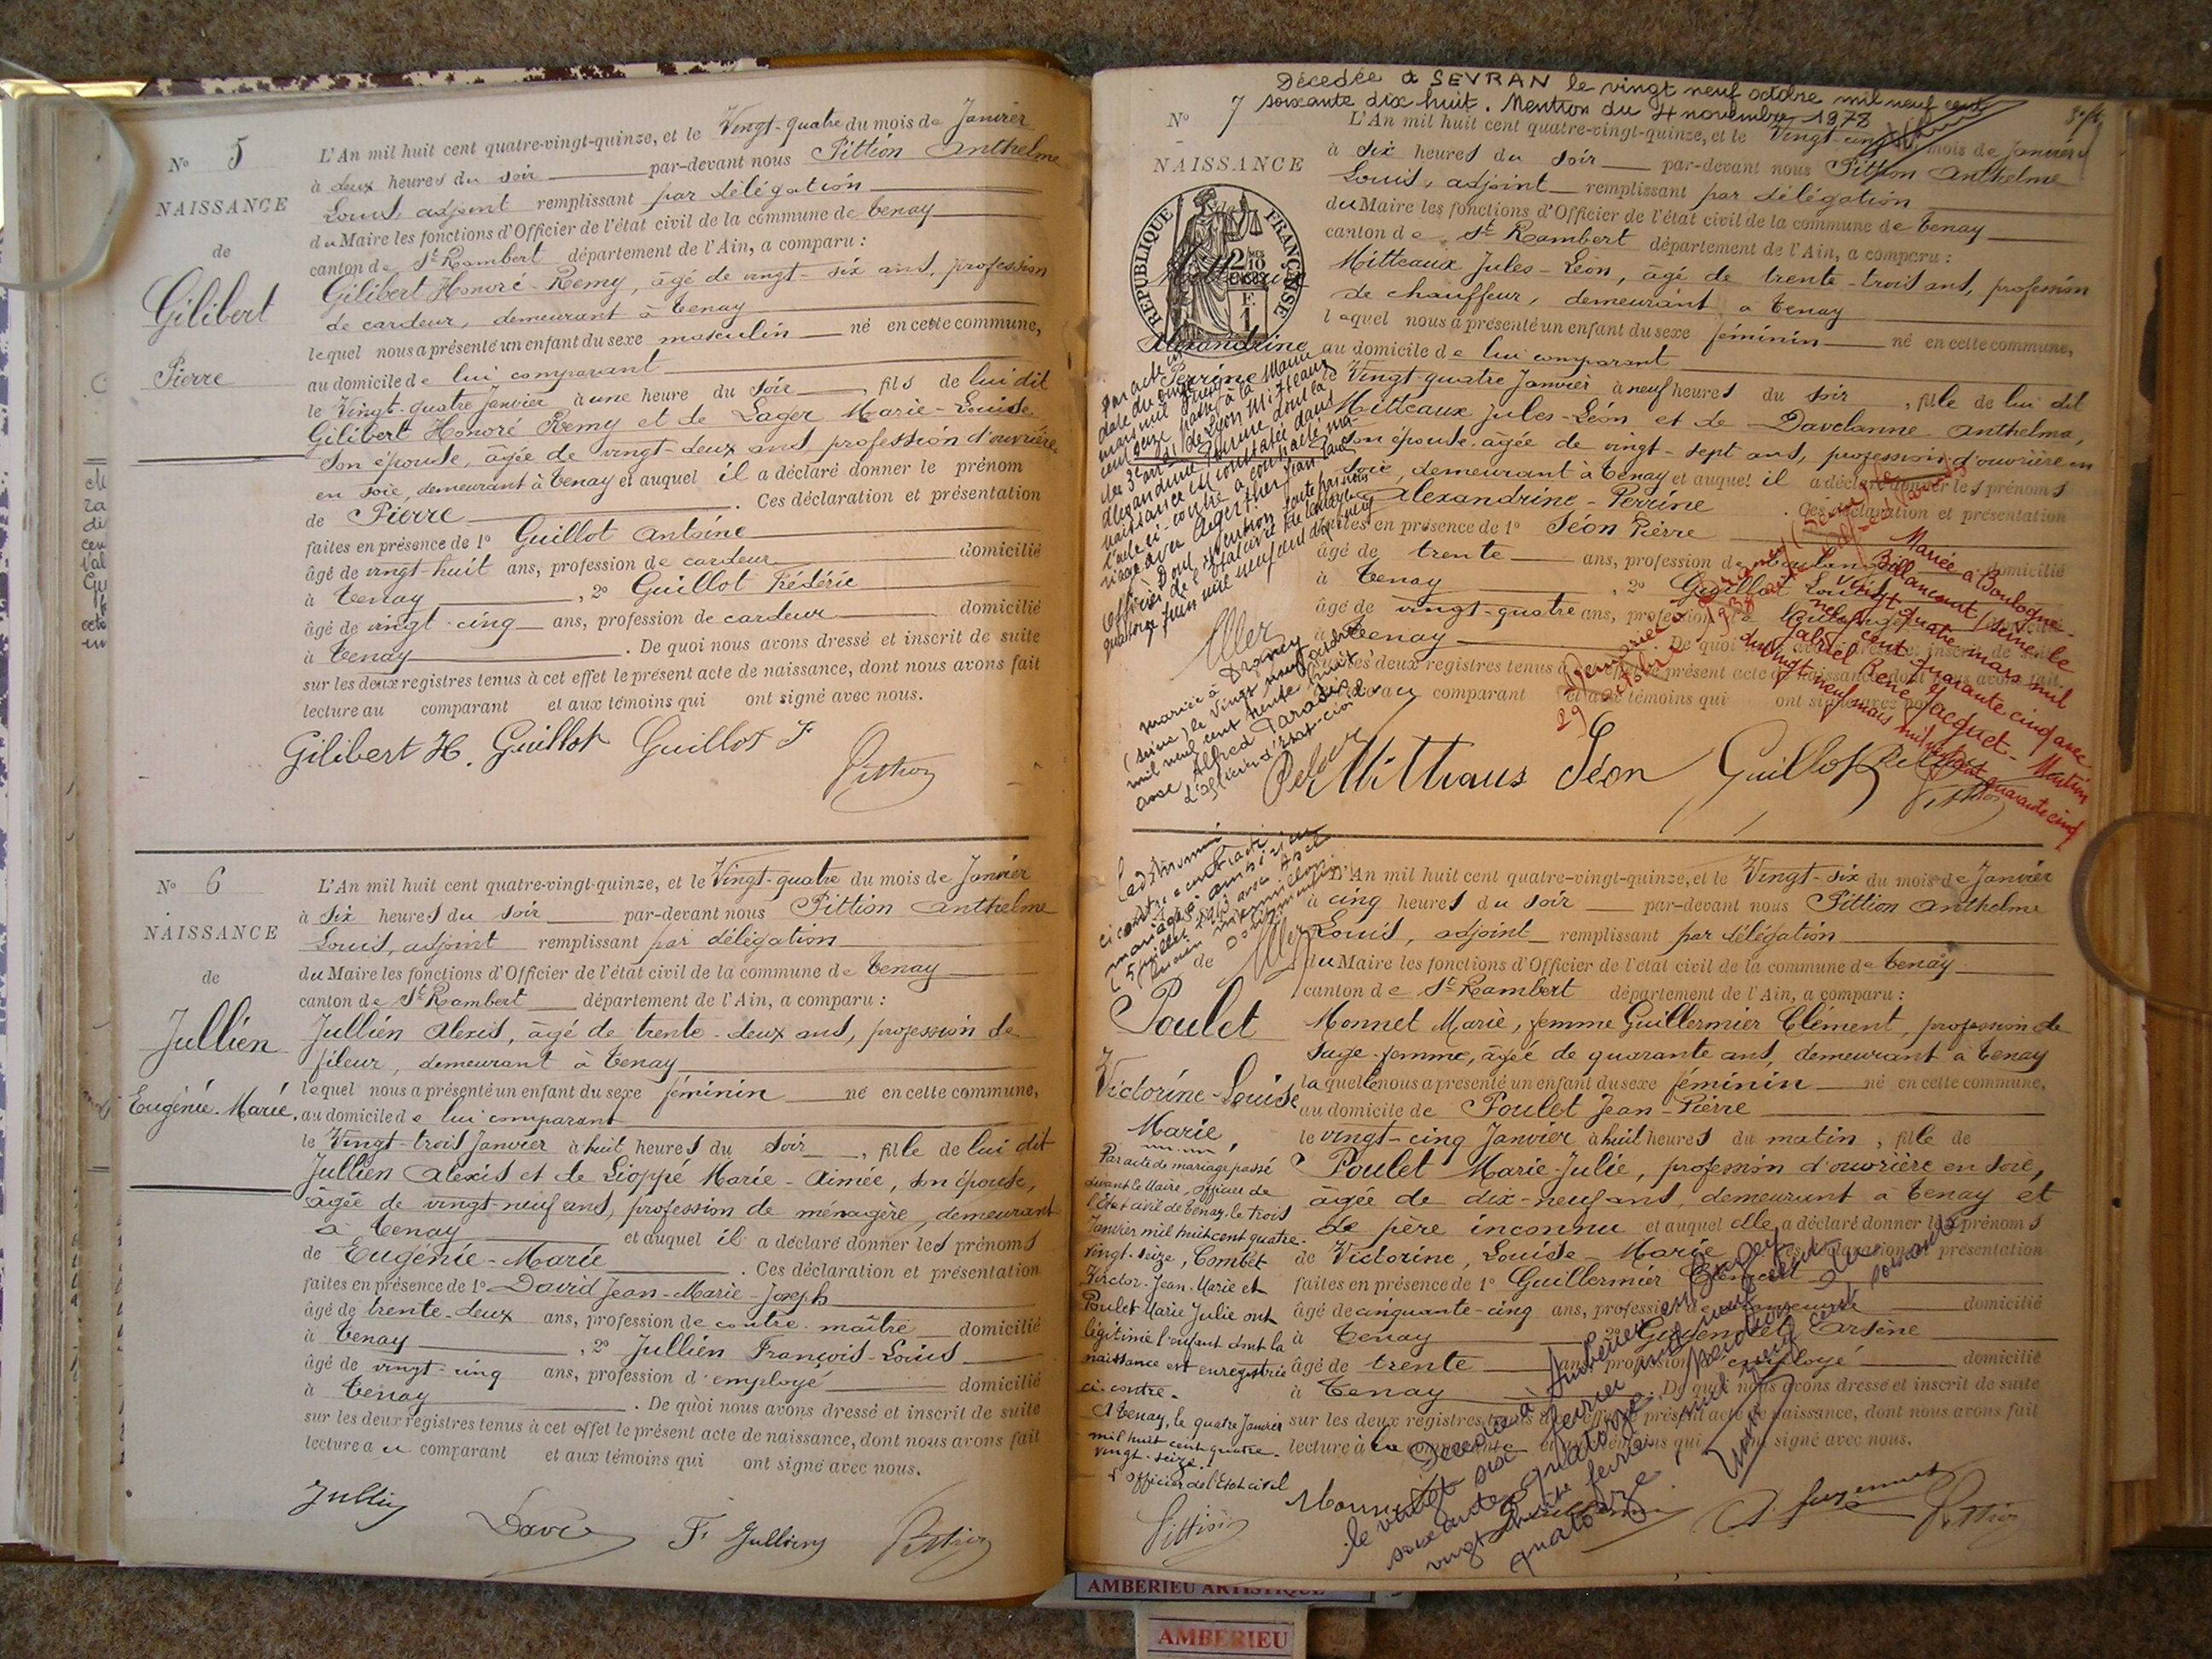 N° 5
NAISSANCE
de
Gilibert
Pierre
L'An mil huit cent quatre-vingt-quinze, et le Vingt-quatre du mois de Janvier
à deux heures du soir par-devant nous Pittion Anthelme
Louis, adjoint remplissant par délégation
du Maire les fonctions d'Officier de l'état civil de la commune de Tenay
canton de St Rambert département de l'Ain, a comparu :
Gilibert Honoré-Remy, âgé de vingt-six ans, profession
de cardeur, demeurant à Tenay
lequel nous a présenté un enfant du sexe masculin né en cette commune,
au domicile de lui comparant
le Vingt-quatre Janvier à une heure du soir, fils de lui dit
Gilibert Honoré Remy et de Lager Marie-Louise
son épouse, âgée de vingt-deux ans, profession d'ouvrière
en soie, demeurant à Tenay et auquel il a déclaré donner le prénom
de Pierre. Ces déclaration et présentation
faites en présence de 1° Guillot Antoine
âgé de vingt-huit ans, profession de cardeur domicilié
à Tenay, 2° Guillot Frédéric
âgé de vingt-cinq ans, profession de cardeur domicilié
à Tenay. De quoi nous avons dressé et inscrit de suite
sur les deux registres tenus à cet effet le présent acte de naissance, dont nous avons fait
lecture au comparant et aux témoins qui ont signé avec nous.
Gilibert H. Guillot Guillot F
Pittion
N° 6
NAISSANCE
de
Jullien
Eugénie-Marie.
L'An mil huit cent quatre-vingt-quinze, et le Vingt-quatre du mois de Janvier
à six heures du soir par-devant nous Pittion Anthelme
Louis, adjoint remplissant par délégation
du Maire les fonctions d'Officier de l'état civil de la commune de Tenay
canton de St Rambert département de l'Ain, a comparu :
Jullien Alexis, âgé de trente-deux ans, profession de
fileur, demeurant à Tenay
lequel nous a présenté un enfant du sexe féminin né en cette commune,
au domicile de lui comparant
le Vingt-trois Janvier à huit heures du soir, fille de lui dit
Jullien Alexis et de Lioppé Marie-Aimée, son épouse,
âgée de vingt-neuf ans, profession de ménagère, demeurant
à Tenay et auquel il a déclaré donner les prénoms
de Eugénie-Marie. Ces déclaration et présentation
faites en présence de 1° David Jean-Marie-Joseph
âgé de trente-deux ans, profession de contre-maître domicilié
à Tenay, 2° Jullien François-Louis
âgé de vingt-cinq ans, profession d'employé domicilié
à Tenay. De quoi nous avons dressé et inscrit de suite
sur les deux registres tenus à cet effet le présent acte de naissance, dont nous avons fait
lecture au comparant et aux témoins qui ont signé avec nous.
Jullien David F. Jullien Pittion
Décédée à SEVRAN le vingt neuf octobre mil neuf cent
soixante dix huit. Mention du 4 novembre 1978
N° 7
NAISSANCE
de
REPUBLIQUE FRANÇAISE
2/10 EN SUS
F. 1
Alexandrine
Perrine
L'An mil huit cent quatre-vingt-quinze, et le Vingt-cinq du mois de Janvier
à six heures du soir par-devant nous Pittion Anthelme
Louis, adjoint remplissant par délégation
du Maire les fonctions d'Officier de l'état civil de la commune de Tenay
canton de St Rambert département de l'Ain, a comparu :
Mitteaux Jules-Léon, âgé de trente-trois ans, profession
de chauffeur, demeurant à Tenay
lequel nous a présenté un enfant du sexe féminin né en cette commune,
au domicile de lui comparant
le Vingt-quatre Janvier à neuf heures du soir, fille de lui dit
Mitteaux Jules-Léon et de Davelanne Anthelma,
son épouse, âgée de vingt-sept ans, profession d'ouvrière en
soie, demeurant à Tenay et auquel il a déclaré donner les prénoms
Alexandrine-Perrine. Ces déclaration et présentation
faites en présence de 1° Léon Pierre
âgé de trente ans, profession de domicilié
à Tenay, 2° Guillot Louis
âgé de vingt-quatre ans, profession
à Tenay. De quoi nous avons dressé et inscrit de suite
sur les deux registres tenus à cet effet le présent acte de naissance, dont nous avons fait
lecture au comparant et aux témoins qui ont signé avec nous.
mariée à Drancy
(Seine) le vingt neuf octobre
mil neuf cent trente huit
avec Alfred Paradis
L'officier d'état-civil
Mariée à Boulogne-
Billancourt (Seine) le
vingt quatre mars mil
neuf cent quarante cinq avec
Gabriel René Jacquet. Mention
du vingt neuf mars mil neuf cent quarante cinq
Mitteaux Léon Guillot
Pittion
de
Poulet
Victorine-Louise
Marie,
L'An mil huit cent quatre-vingt-quinze, et le Vingt-six du mois de Janvier
à cinq heures du soir par-devant nous Pittion Anthelme
Louis, adjoint remplissant par délégation
du Maire les fonctions d'Officier de l'état civil de la commune de Tenay
canton de St Rambert département de l'Ain, a comparu :
Monnet Marie, femme Guillermier Clément, profession de
sage-femme, âgée de quarante ans, demeurant à Tenay
laquelle nous a présenté un enfant du sexe féminin né en cette commune,
au domicile de Poulet Jean-Pierre
le vingt-cinq Janvier à huit heures du matin, fille de
Poulet Marie-Julie, profession d'ouvrière en soie,
âgée de dix-neuf ans, demeurant à Tenay et
de père inconnu et auquel elle a déclaré donner les prénoms
de Victorine, Louise-Marie. Ces déclaration et présentation
faites en présence de 1° Guillermier Clément
âgé de cinquante-cinq ans, profession de domicilié
à Tenay, 2° Guyennet Arsène
âgé de trente ans, profession d'employé domicilié
à Tenay. De quoi nous avons dressé et inscrit de suite
sur les deux registres tenus à cet effet le présent acte de naissance, dont nous avons fait
lecture à la comparante et aux témoins qui ont signé avec nous.
Par acte de mariage passé
devant le Maire, officier de
l'État civil de Tenay, le trois
Janvier mil huit cent quatre-
vingt-seize, Combet
Victor-Jean-Marie et
Poulet Marie Julie ont
légitimé l'enfant dont la
naissance est enregistrée
ci-contre.
A Tenay, le quatre Janvier
mil huit cent quatre-
vingt-seize.
L'officier de l'État civil
Pittion
Décédée à Ambérieu en Bugey
le vingt six février mil neuf cent
soixante quatorze. Mention du
vingt huit février mil neuf cent soixante
quatorze
Pittion
AMBERIEU ARTISTIQUE
AMBERIEU